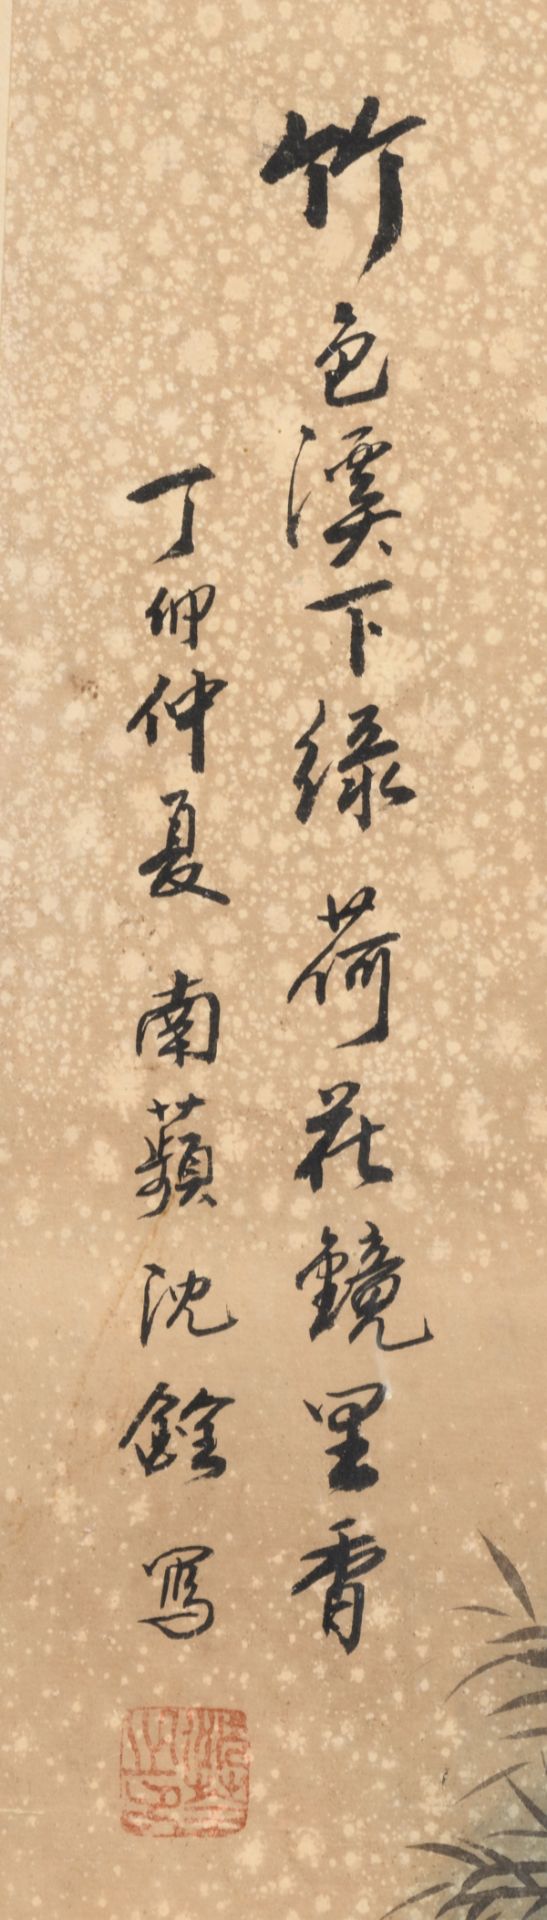 竹色溪下綠荷花鏡里香
丁卯仲夏南蘋沈銓寫